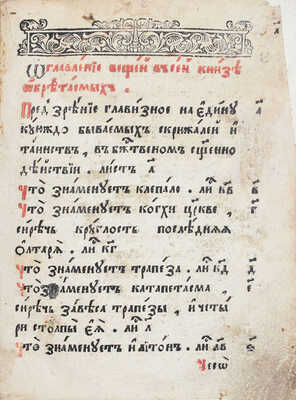 Ѡглавленїе вещей въсей книзѣ
ѡбрѣтаемыхъ.
Предзрѣнїе главизное на єдину
куюждо бываемыхъ скрижалей и
таинствъ, въ бж҃твеном сщ҃енно
дѣйствїи. листъ а҃
Что знаменуетъ клепало. ли к҃в в҃
Что знаменуетъ когхи цр҃кве,
сирѣчь круглость послѣдняя
ѻлтаря. ли к҃г
Что знаменуетъ трапеза. ли к҃д д҃
Что знаменуетъ катапетасма,
сирѣчь завѣса трапезы, и четы
ри столпы єѧ. ли л҃
Что знаменуетъ